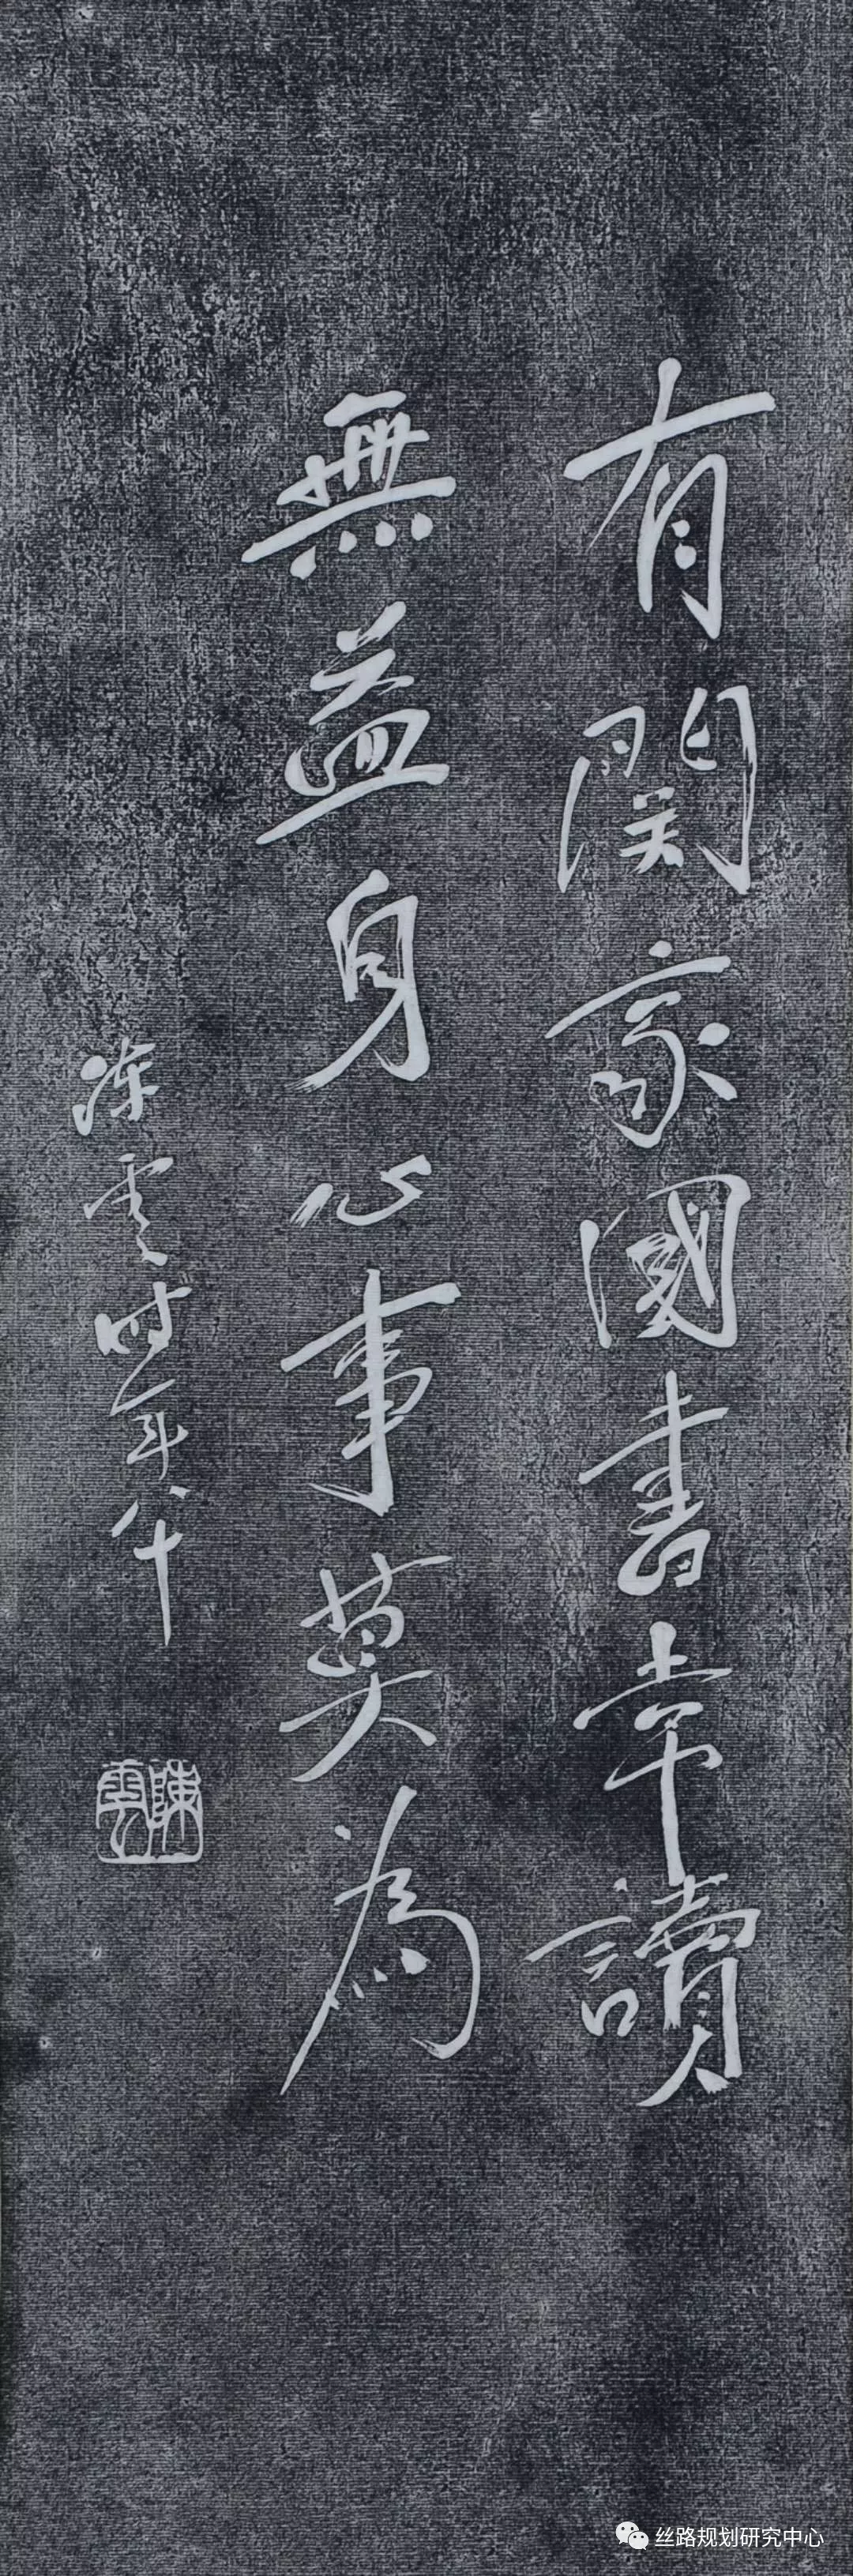 有関家國書常讀
無益身心事莫為
陈雲时年八十
陳雲
丝路规划研究中心